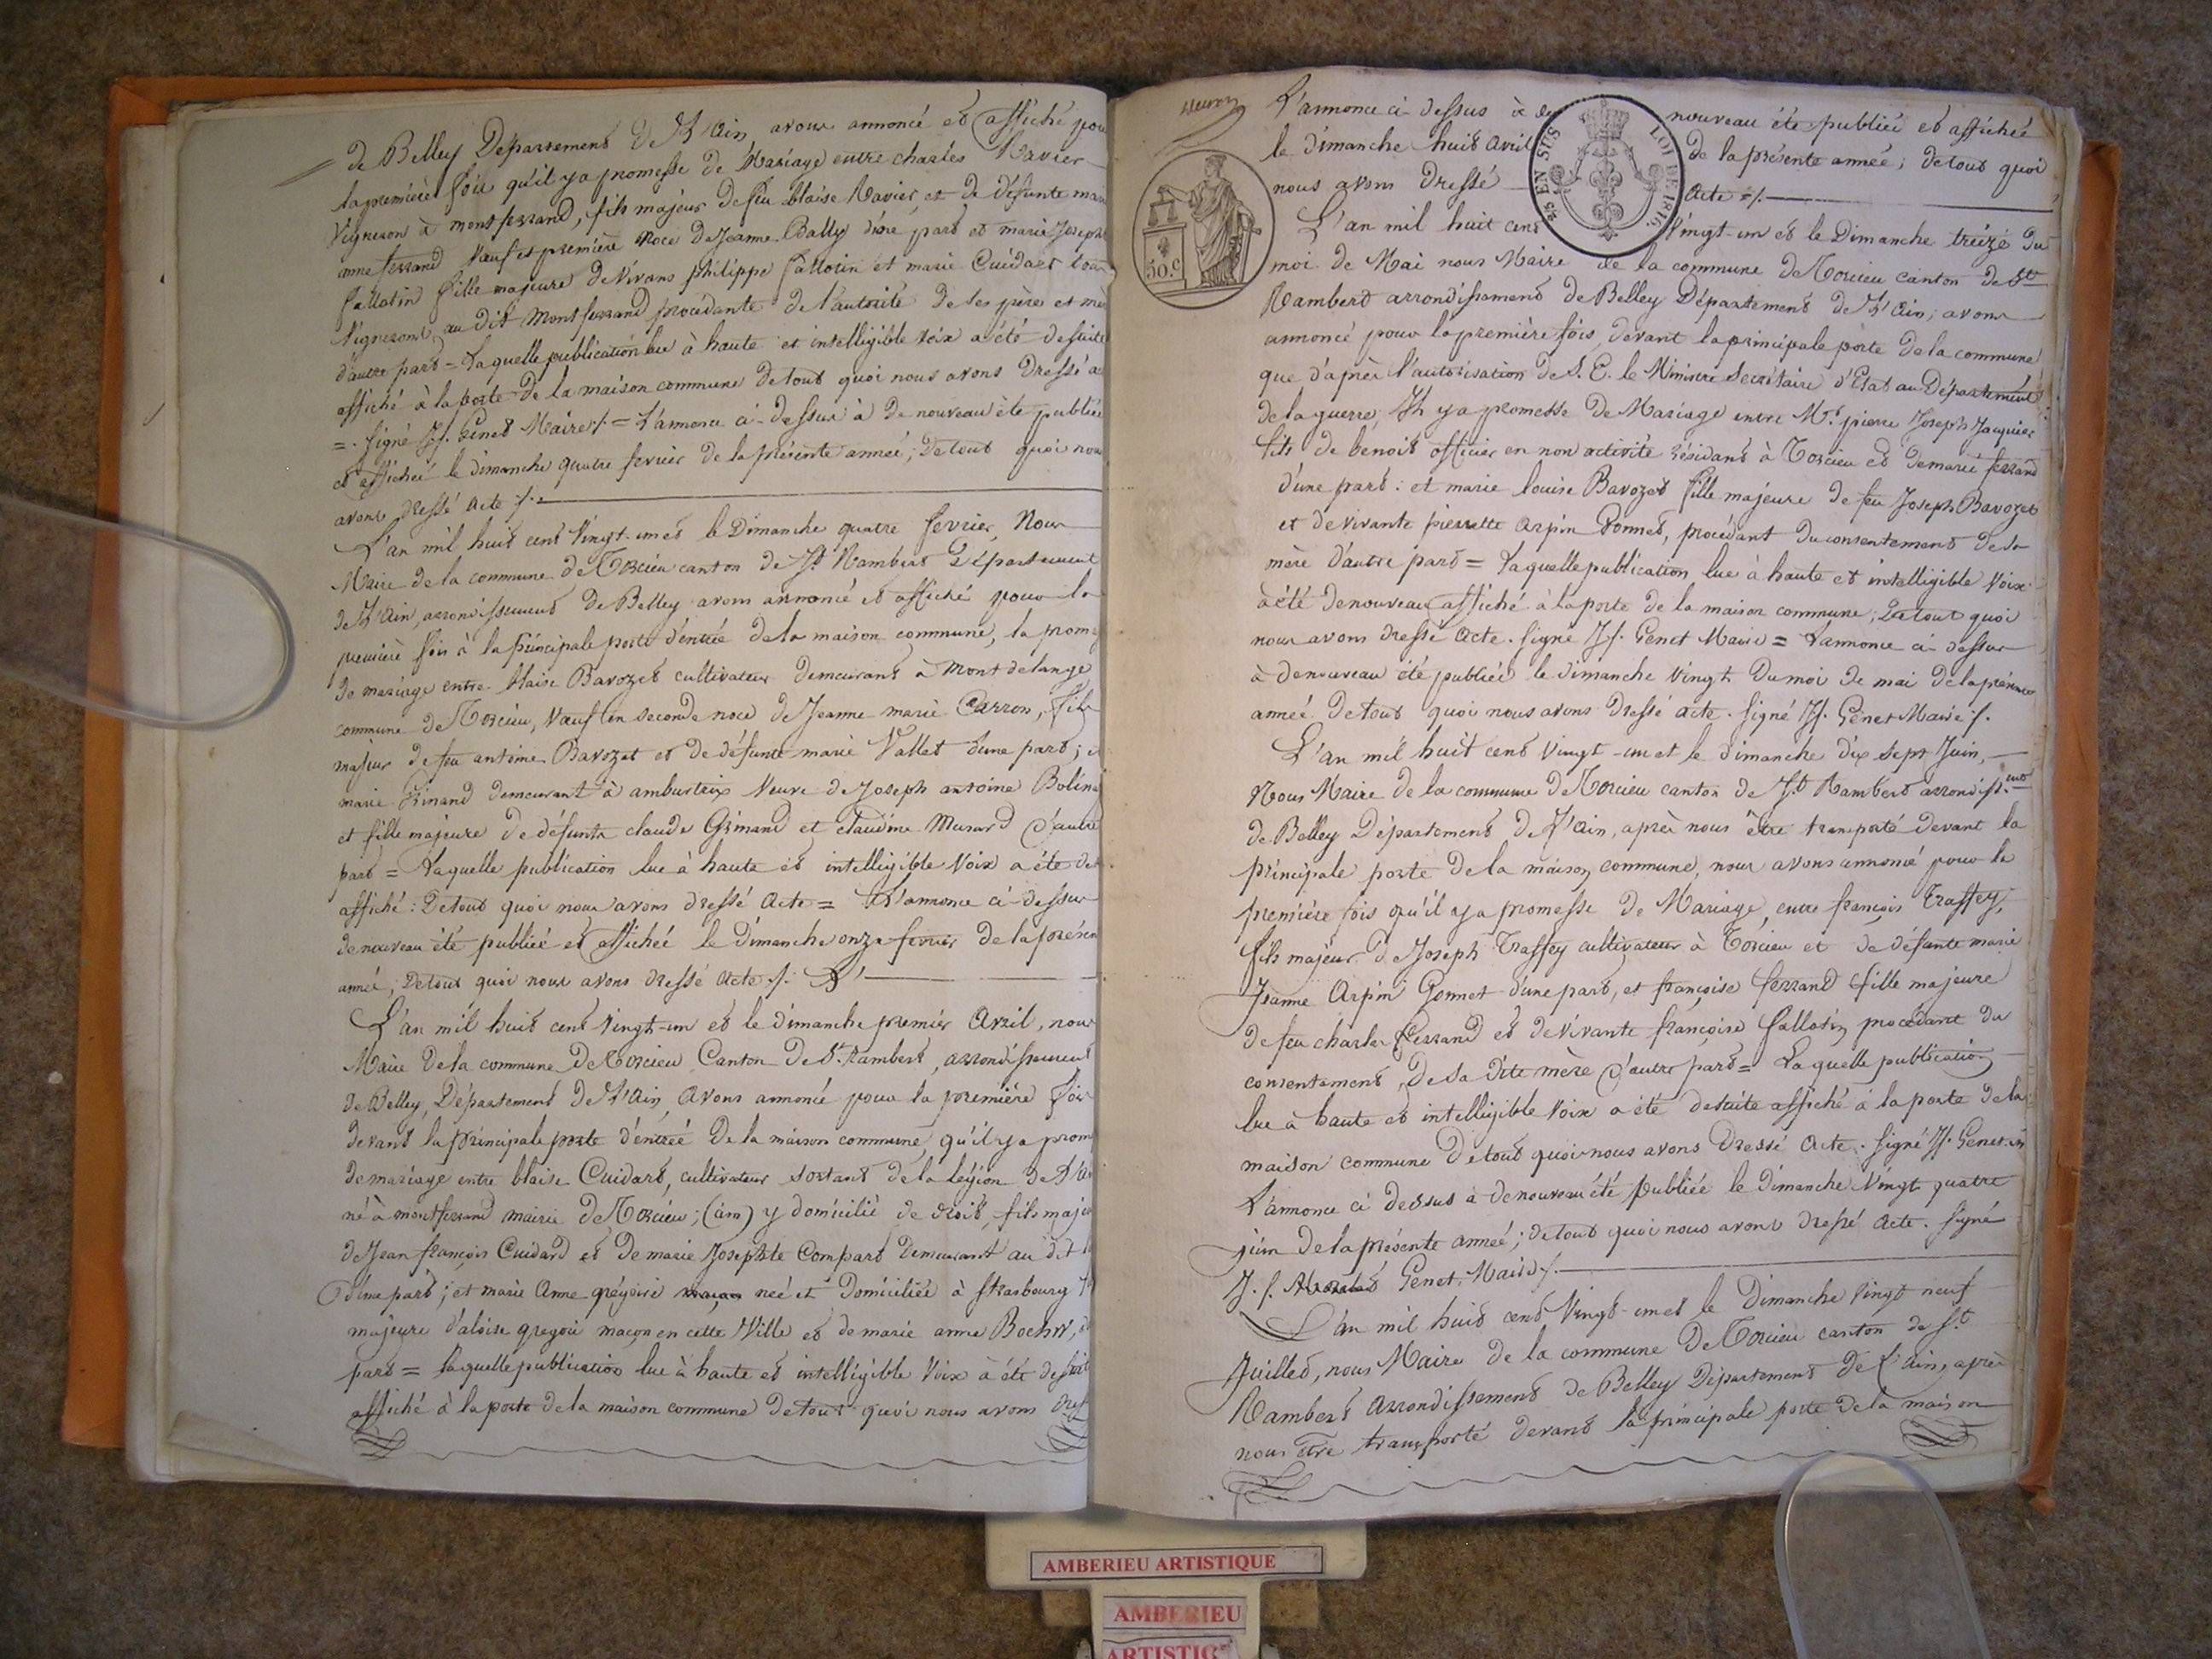 de Belley Département de L'Ain avons annoncé et affiché pour
la première fois qu'il y a promesse de Mariage entre charles Navier
Vigneron à montferrand, fils majeur de feu blaise Navier, et de défunte marie
anne ferrand Veuf en première noce de Jeanne Bally d'une part et marie Josephte
fallatin fille majeure de vivans philippe fallotin et marie Cuidard tous
Vignerons au dit Montferrand procédante de l'autorité de ses père et mère
d'autre part = Laquelle publication lue à haute et intelligible voix a été desuite
affiché à la porte de la maison commune de tout quoi nous avons Dressé acte
=. signé Jf. Genet Maire ⁒ = L'annonce ci-dessus à de nouveau été publiée
et affichée le dimanche quatre fevrier de la présente année; de tout quoi nous
avons dressé acte ⁒
L'an mil huit cent Vingt-un et le Dimanche quatre fevrier, Nous
Maire de la commune de Torcieu canton de St Rambert Département
de L'Ain, arrondissement de Belley avons annoncé et affiché pour la
première fois à la principale porte d'entrée de la maison commune, la prom
de mariage entre blaise Bavozet cultivateur demeurant à Mont delange
commune de Torcieu, Veuf en seconde noce de Jeanne marie Carron, fils
majeur de feu antoine Bavozet et de défunte marie Vallet d'une part; et
marie Grimand demeurant à ambutrix Veuve de Joseph antoine Bolina
et fille majeure de défunts claude Grimand et claudine Musard d'autre
part = Laquelle publication lue à haute et intelligible Voix a été de
affiché: De tout quoi nous avons dressé Acte = L'annonce ci-dessus
de nouveau été publiée et affichée le dimanche onze fevrier de la présen
année; De tout quoi nous avons dressé acte ⁒
L'an mil huit cent Vingt-un et le dimanche premier Avril, nous
Maire de la commune de Torcieu Canton de St. Rambert, arrondissement
de Belley, Département de L'Ain, Avons annoncé pour la première fois
devant la principale porte d'entrée de la maison commune, qu'il y a prom
de mariage entre blaise Cuidard, cultivateur sortant de la Légion de L'Ai
né à montferrand mairie de Torcieu; (ain) y domicilié de droit, fils majeur
de Jean françois Cuidard et de marie Josephte Compart demeurant au dit l
d'une part; et marie Anne grégoire née et Domiciliée à strasbourg f
majeure d'aloise gregoir maçon en cette Ville et de marie anne Bochrr, d
part = laquelle publication lue à haute et intelligible Voix à été desuite
affiché à la porte de la maison commune de tout quoi nous avons Dres
L'annonce ci-dessus à de nouveau été publiée et affichée
le dimanche huit avril de la présente année; de tout quoi
nous avons Dressé Acte ⁒
50.C
2/5 EN SUS LOI DE 1816.
L'an mil huit cent Vingt-un et le Dimanche treize du
moi de Mai nous Maire de la commune de Torcieu canton de St
Rambert arrondissement de Belley Département de L'Ain; avons
annoncé pour la première fois, devant la principale porte de la commune
que d'après l'autorisation de S. E. le Ministre Secrétaire d'Etat au Département
de la guerre, Il y a promesse de Mariage entre Mr. pierre Joseph Jacquier
fils de benoit officier en non activité résidant à Torcieu et de marie ferrand
d'une part: et marie louise Bavozet fille majeure de feu Joseph Bavozet
et de vivante pierrette Arpin Gonnet, procédant du consentement de sa
mère d'autre part = Laquelle publication lue à haute et intelligible Voix
à été de nouveau affiché à la porte de la maison commune; De tout quoi
nous avons dressé Acte. signé Jf. Genet Maire = L'annonce ci-dessus
à de nouveau été publiée le dimanche Vingt du moi de mai de la présente
année De tout quoi nous avons Dressé acte. signé Jf. Genet Maire ⁒.
L'an mil huit cent Vingt-un et le dimanche dix sept Juin,
Nous Maire de la commune de Torcieu canton de St Rambert arrondisst.
de Belley Département de L'Ain, après nous être transporté devant la
principale porte de la maison commune, nous avons annoncé pour la
première fois qu'il y a promesse de Mariage, entre françois Traffey,
fils majeur de Joseph Traffey cultivateur à Torcieu et de défunte marie
Jeanne Arpin Gonnet d'une part, et françoise ferrand fille majeure
de feu charles ferrand et de vivante françoise fallotin procédant du
consentement, de sa dite mère d'autre part = Laquelle publication
lue à haute et intelligible Voix a été desuite affiché à la porte de la
maison commune De tout quoi nous avons Dressé Acte. signé Jf. Genet m
L'annonce ci dessus à de nouveau été publiée le dimanche Vingt quatre
juin de la présente année; de tout quoi nous avons dressé Acte. signé
J. f. Genet. Maire ⁒.
L'an mil huit cent Vingt-un et le Dimanche Vingt neuf
Juillet, nous Maire de la commune De Torcieu canton de St
Rambert Arrondissement de Belley Département de L'Ain, après
nous être transporté devant la principale porte de la maison
AMBERIEU ARTISTIQUE
AMBERIEU
ARTISTIQ